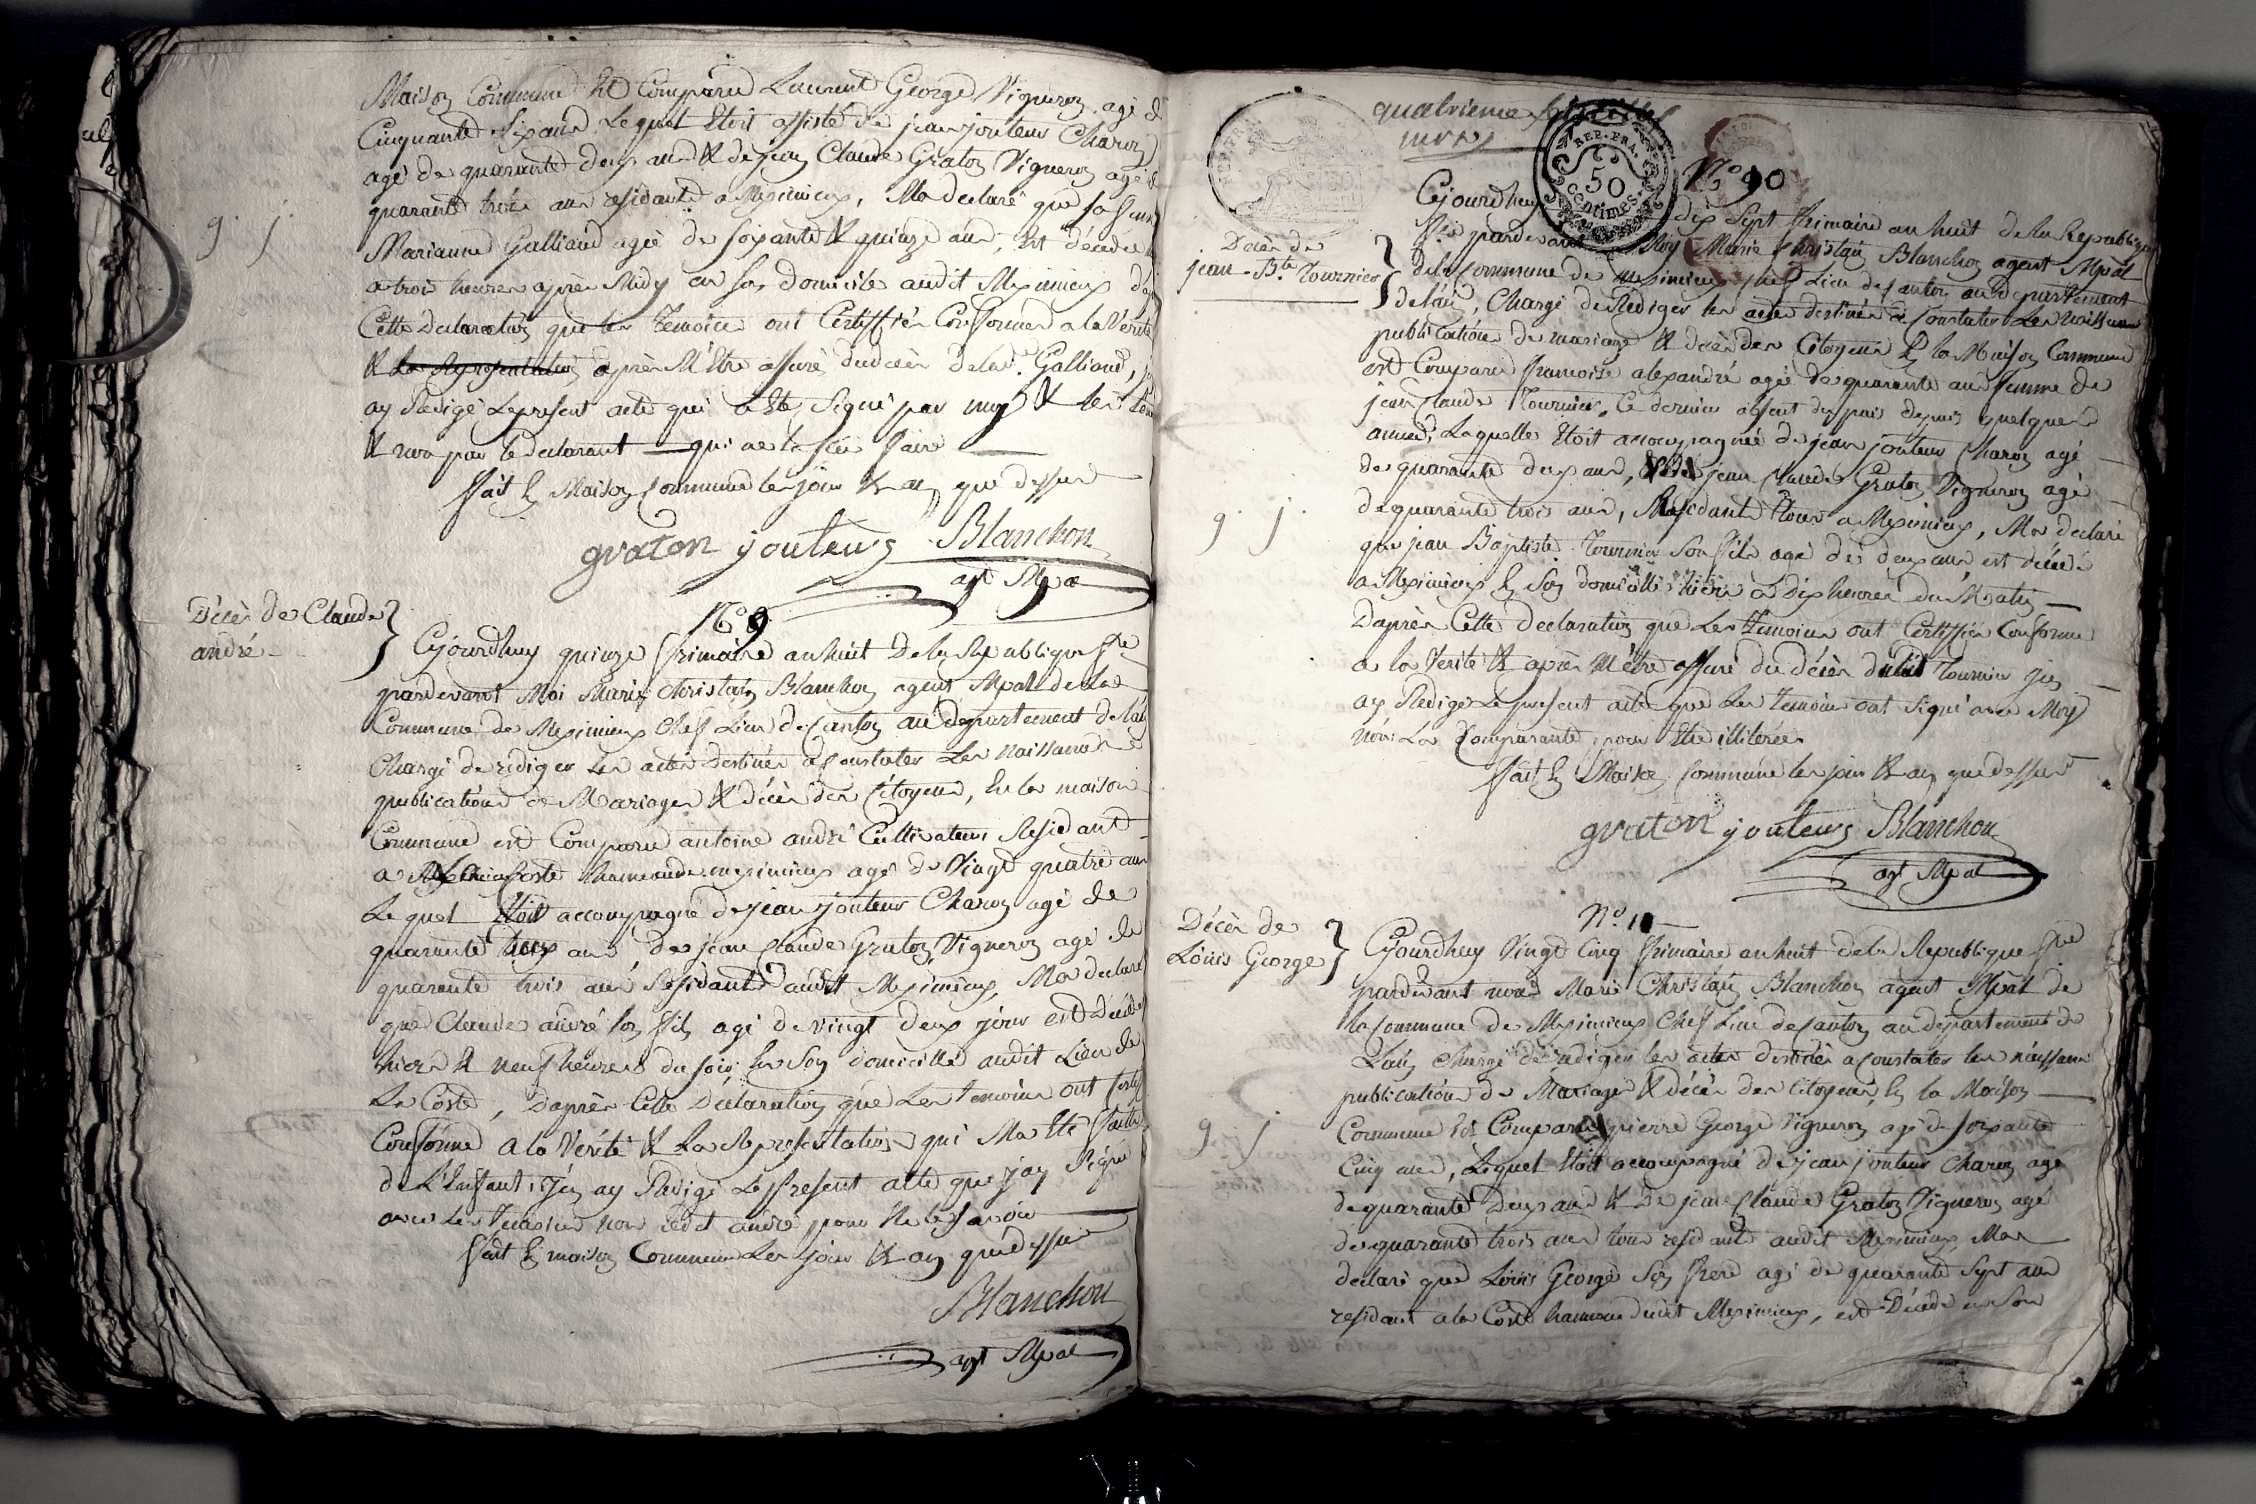 Maison Commune Est Comparu Laurent George Vigneron agé de
Cinquante Six ans Lequel Etoit assisté de jean jouteur Charon
agé de quarante deux ans & de jean Claude Graton Vigneron agé de
quarante trois ans residants a Meximieux, M'a declaré que sa femme
Marianne Galliand agée de soixante & quinze ans, Est décédée
a trois heures après Midy en son domicile audit Meximieux d'après
Cette Declaration que les Temoins ont Certiffiés Conforme a la Vérité
& la Representation après M'Etre assuré du décès de lad. Galliand,
ay Redigé Le present acte qui a Eté Signé par moy & les
& non par le declarant qui ne la sçu faire
fait En Maison Commune les jour & an que dessus
graton jouteur Blanchon
agt Mpal
g. j.
Décès de Claude
andré
N° 9
Cejourdhuy quinze frimaire an huit De la Republique fse
pardevant Moi Marie Christain Blanchon agent Mpal de La
Commune de Meximieux Chef Lieu de Canton au departement de l'ain
Chargé de rediger les actes Destinés a Constater Les naissances
publications de Mariages & décès des Citoyens, En la maison
Commune est Comparu antoine andré Cultivateur Residant
a La Coste hameau de meximieux agé de Vingt quatre ans
Lequel Etoit accompagné de jean jouteur Charon agé de
quarante deux ans, de jean Claude Graton Vigneron agé de
quarante trois ans Residants audit Meximieux, M'a declaré
que Claude andré son fils agé de vingt deux jours est décédé
hier a neuf heures du soir En Son domicille audit Lieu de
La Coste, D'après Cette Déclaration que Les temoins ont Certif
Conforme a la Vérité & La Representation qui M'a Eté faite
de L'Enfant, j'en ay Redigé Le Present acte que j'ay Signé
avec Les Temoins non ledit andré pour Ne le Savoir
fait En maison Commune Les jour & an que dessus
Blanchon
agt Mpal
quatrieme feuillet
50
REP. FRA.
Centimes
N° 10
Décès de
jean Bte Tournier
Cejourdhuy dix Sept frimaire an huit de la Republique
fse pardevant Moy Marie Christain Blanchon agent Mpal
de la Commune de meximieux chef Lieu de Canton au departement
de l'ain, Chargé de Rediger les actes destinés a Constater Les naissances
publications de mariage & décès des Citoyens En la Maison Commune
est Comparue francoise alexandré agée de quarante ans femme de
jean Claude Tournier, Ce dernier absent du pais depuis quelques
années, Laquelle Etoit accompagnée de jean jouteur Charon agé
de quarante deux ans, jean Claude Graton Vigneron agé
de quarante trois ans, Residants Tous a Meximieux, M'a declaré
que jean Baptiste Tournier Son fils agé de deux ans est décédé
a Meximieux En Son domicille hier a Dix heures du Matin
D'après Cette Declaration que Les Temoins ont Certiffiés Conforme
a la Verité & après M'être assuré du décès dudit Tournier j'en
ay Redigé Le present acte que Les temoins ont Signé avec Moy
non La Comparante pour Etre illiterée
fait En Maison Commune les jour & an que dessus
graton jouteur Blanchon
agt Mpal
g. j.
N° 11
Décès de
Louis George
Cejourdhuy Vingt Cinq frimaire an huit de la Republique fse
pardevant nous Marie Christain Blanchon agent Mpal de
la Commune de Meximieux Chef Lieu de Canton au departement de
L'ain chargé de rediger les actes destinés a Constater les naissances
publications de Mariages & décès des Citoyens, En la Maison
Commune Est Comparu pierre George Vigneron agé de soixante
Cinq ans, Lequel Etoit accompagné de jean jouteur Charon agé
de quarante Deux ans & De jean Claude Graton Vigneron agé
de quarante trois ans tous residants audit Meximieux, M'a
declaré que Louis George Son frere agé de quarante Sept ans
residant a la Coste hameau dudit Meximieux, est Décédé en Son
g. j.